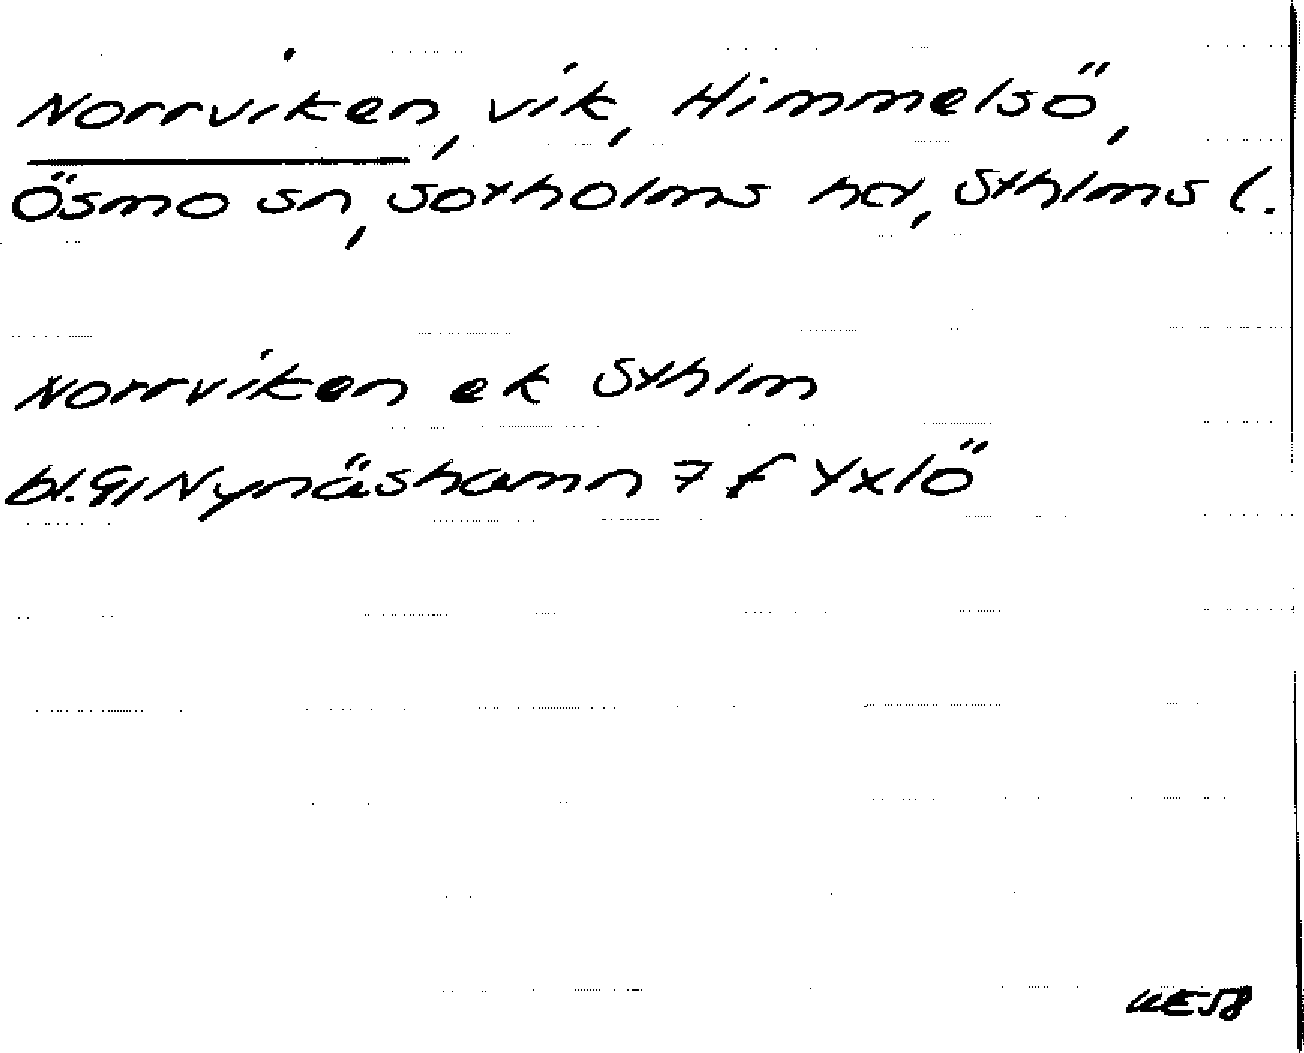 Norrviken, vik, Himmelsö,
Ösmo sn, Sotholms hd, Sthlms l.
Norrviken ek Sthlm
bl. 91 Nynäshamn 7 f Yxlö
UE58